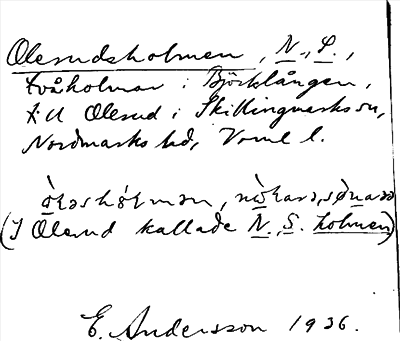 Olerudsholmen, N., S.,
två holmar i Björklången,
t. ill Olerud i Skillingmarks sn,
Nordmarks hd, Vrml l.
(I Olerud kallade N., S. holmen)
E. Andersson 1936.